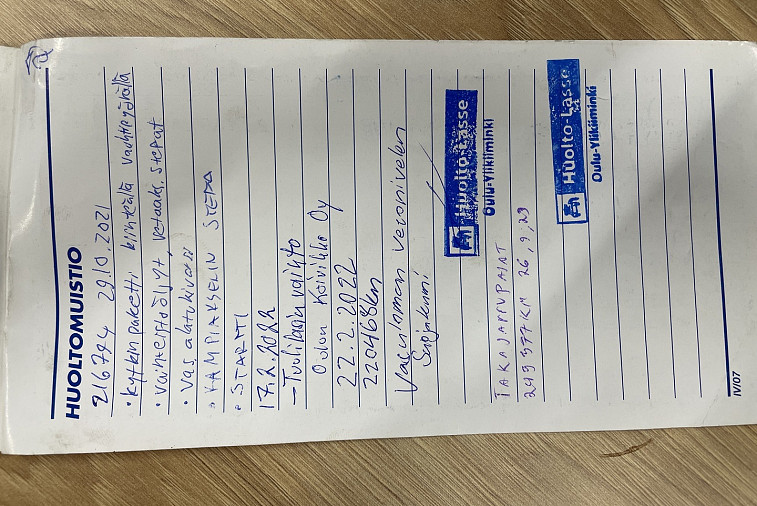 HUOLTOMUISTIO
216724 29.10.2021
• Kytkinpaketti kiinteällä vauhtipyörällä
• Vaihteistoöljyt, vetoaks. stefat
• Vas alatukivarsi
• KAMPIAKSELIN STEFA
• STARTTI
17.2.2022
- Tuulilasin vaihto
Oulun Koivikko Oy
22.2.2022
220468km
Vasemman vetonivelen
Suojakumi
Huolto-Lasse
Oulu-Ylikiiminki
TAKAJARRUPALAT
249377KM 26.9.23
Huolto-Lasse
Oulu-Ylikiiminki
IV/07